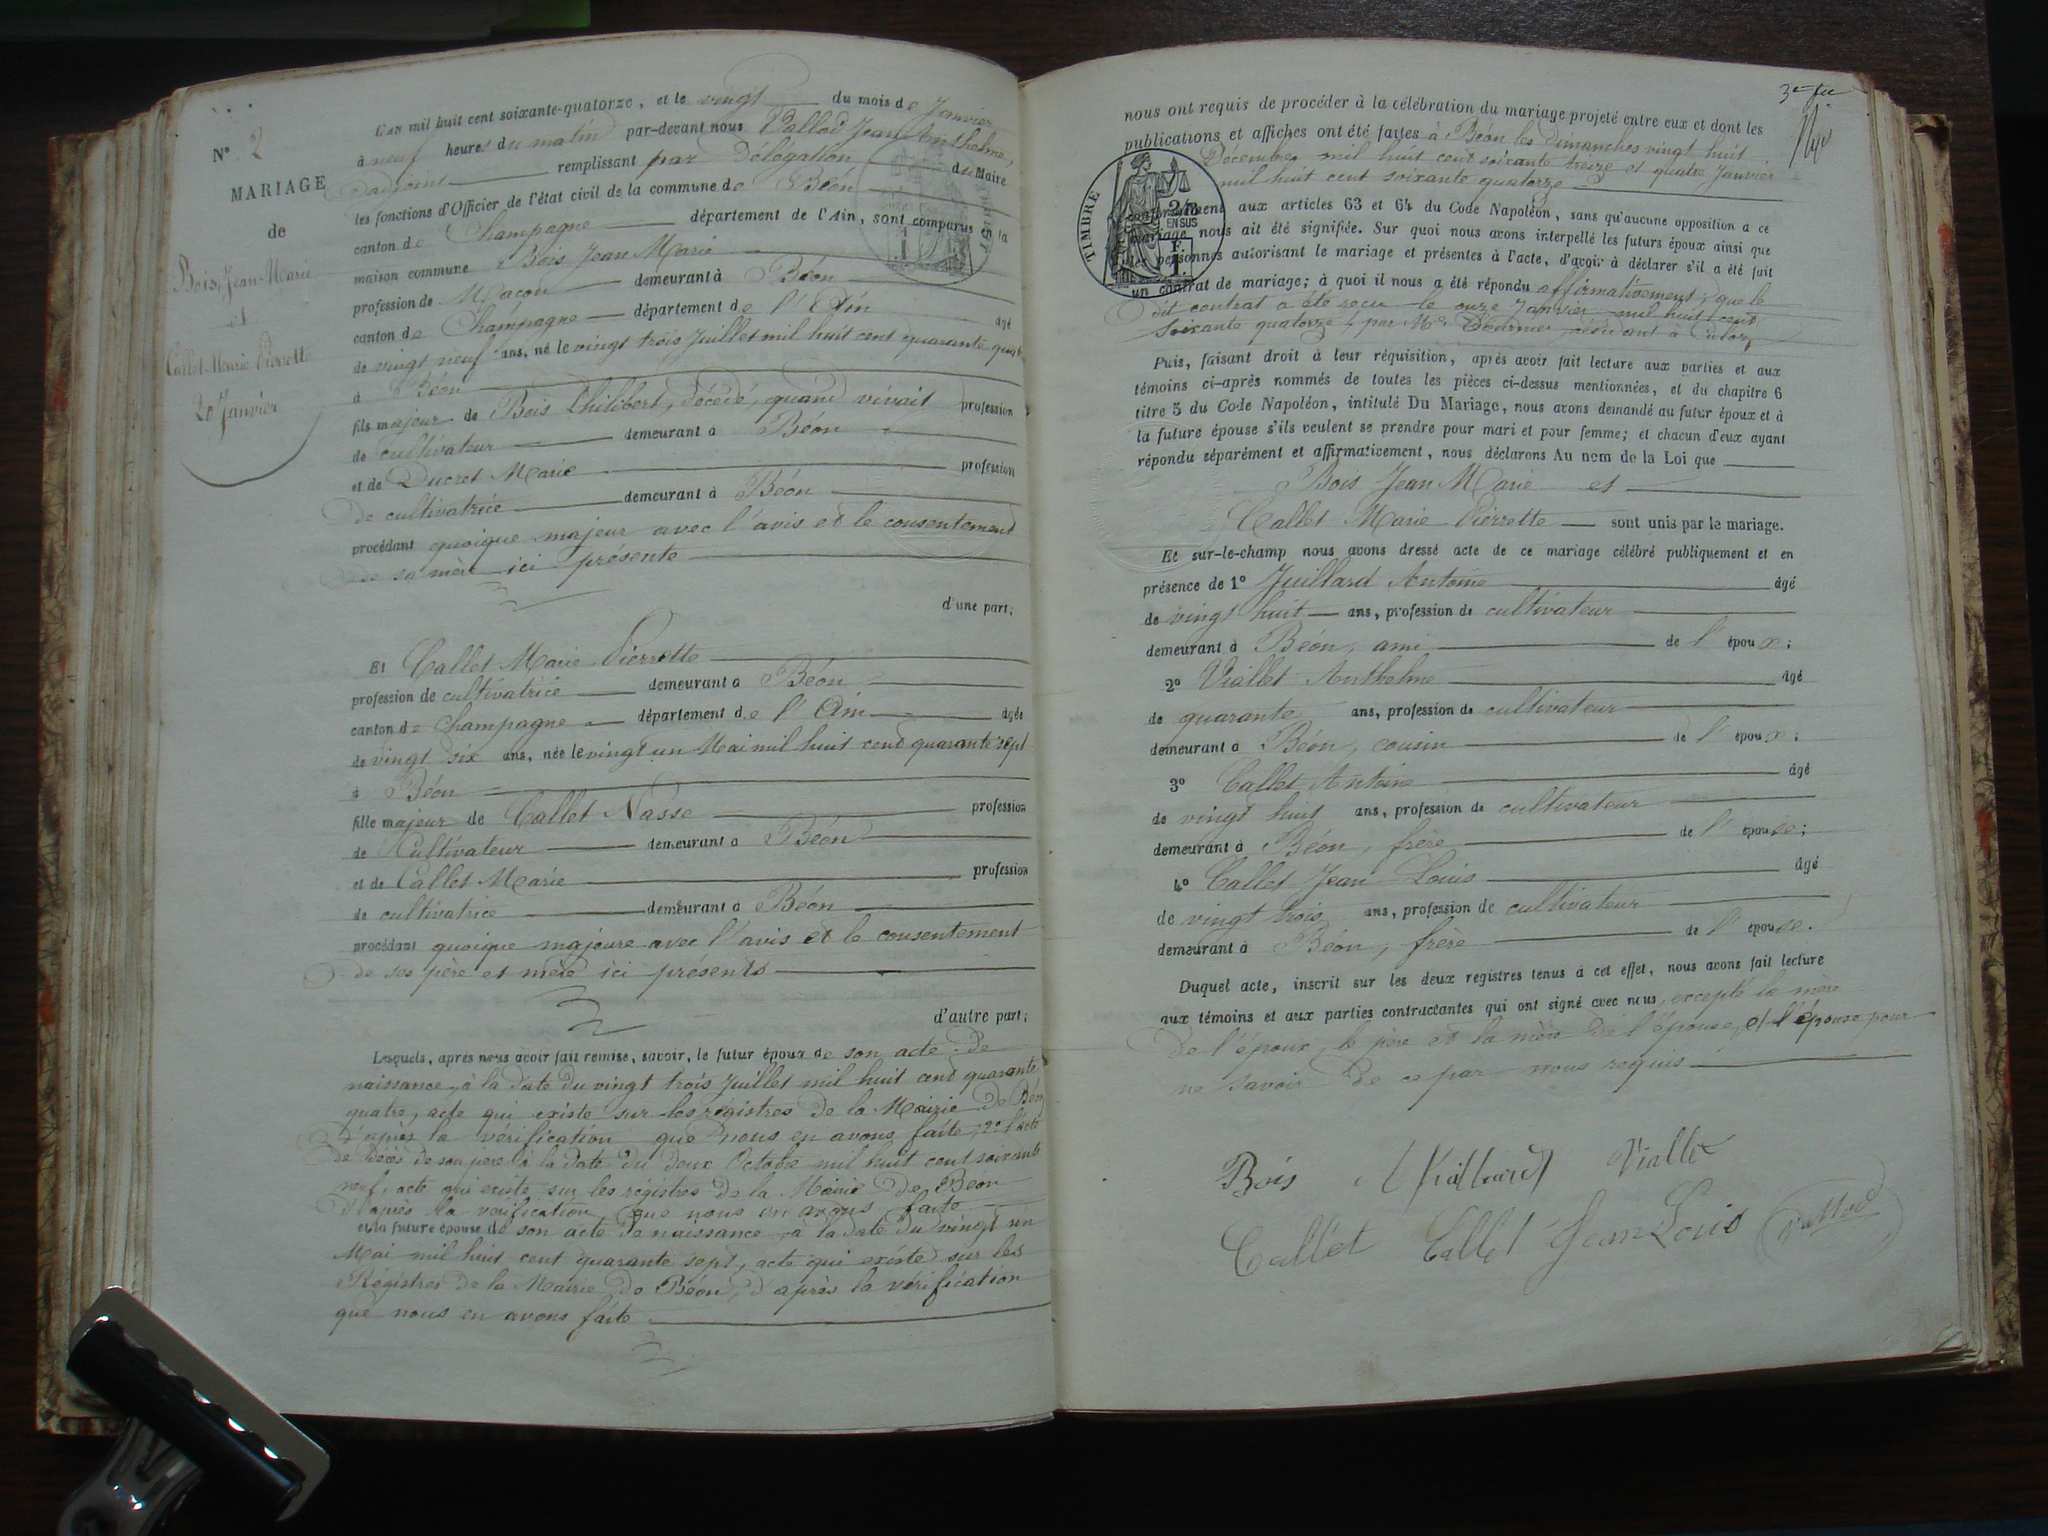 N° 2
MARIAGE
de
Bois, Jean-Marie
et
Callet Marie Pierrette
20 Janvier
L'an mil huit cent soixante-quatorze, et le vingt du mois de Janvier
à neuf heures du matin par-devant nous Vallod Jean Anthelme,
adjoint remplissant par Délégation du Maire
les fonctions d'Officier de l'état civil de la commune de Béon
canton de Champagne département de l'Ain, sont comparus à la
maison commune Bois Jean Marie
profession de Maçon demeurant à Béon
canton de Champagne département de l'Ain âgé
de vingt neuf ans, né le vingt trois Juillet mil huit cent quarante quatre
à Béon
fils majeur de Bois Philibert, décédé, quand vivait profession
de cultivateur demeurant à Béon
et de Ducret Marie profession
de cultivatrice demeurant à Béon
procédant quoique majeur avec l'avis et le consentement
de sa mère ici présente
d'une part;
Et Callet Marie Pierrette
profession de cultivatrice demeurant à Béon
canton de Champagne département de l'Ain âgée
de vingt six ans, née le vingt un Mai mil huit cent quarante sept
à Béon
fille majeur de Callet Nasse profession
de Cultivateur demeurant à Béon
et de Callet Marie profession
de cultivatrice demeurant à Béon
procédant quoique majeure avec l'avis et le consentement
de ses père et mère ici présents
d'autre part;
Lesquels, après nous avoir fait remise, savoir, le futur époux de son acte de
naissance, à la date du vingt trois Juillet mil huit cent quarante
quatre, acte qui existe sur les régistres de la Mairie de Béon
d'après la vérification que nous en avons faite, 2° l'acte
de décès de son père à la date du deux Octobre mil huit cent soixante
neuf, acte qui existe sur les régistres de la Mairie de Béon
d'après la vérification que nous en avons faite
et la future épouse de son acte de naissance à la date du vingt un
Mai mil huit cent quarante sept, acte qui existe sur les
Régistres de la Mairie de Béon, d'après la vérification
que nous en avons faite
3e fet
nous ont requis de procéder à la célébration du mariage projeté entre eux et dont les
publications et affiches ont été faites à Béon les dimanches vingt huit
Décembre mil huit cent soixante treize et quatre Janvier
mil huit cent soixante quatorze
TIMBRE
2/10
EN SUS
F.
1.
conformément aux articles 63 et 64 du Code Napoléon, sans qu'aucune opposition à ce
mariage nous ait été signifiée. Sur quoi nous avons interpellé les futurs époux ainsi que
les personnes autorisant le mariage et présentes à l'acte, d'avoir à déclarer s'il a été fait
un contrat de mariage; à quoi il nous a été répondu affirmativement, que le
dit contrat a été reçu le onze Janvier mil huit cent
soixante quatorze, par Me résidant à Culoz,
Puis, faisant droit à leur réquisition, après avoir fait lecture aux parties et aux
témoins ci-après nommés de toutes les pièces ci-dessus mentionnées, et du chapitre 6
titre 5 du Code Napoléon, intitulé Du Mariage, nous avons demandé au futur époux et à
la future épouse s'ils veulent se prendre pour mari et pour femme; et chacun d'eux ayant
répondu séparément et affirmativement, nous déclarons Au nom de la Loi que
Bois Jean Marie et
Callet Marie Pierrette sont unis par le mariage.
Et sur-le-champ nous avons dressé acte de ce mariage célébré publiquement et en
présence de 1° Juillard Antoine âgé
de vingt huit ans, profession de cultivateur
demeurant à Béon, ami de l'époux;
2° Viallet Anthelme âgé
de quarante ans, profession de cultivateur
demeurant à Béon, cousin de l'époux;
3° Callet Antoine âgé
de vingt huit ans, profession de cultivateur
demeurant à Béon, frère de l'épouse;
4° Callet Jean Louis âgé
de vingt trois ans, profession de cultivateur
demeurant à Béon, frère de l'épouse.
Duquel acte, inscrit sur les deux registres tenus à cet effet, nous avons fait lecture
aux témoins et aux parties contractantes qui ont signé avec nous, excepté la mère
de l'époux, le père et la mère de l'épouse, et l'épouse pour
ne savoir de ce par nous requis
Bois Juillard Viallet
Callet Callet Jean Louis Vallod